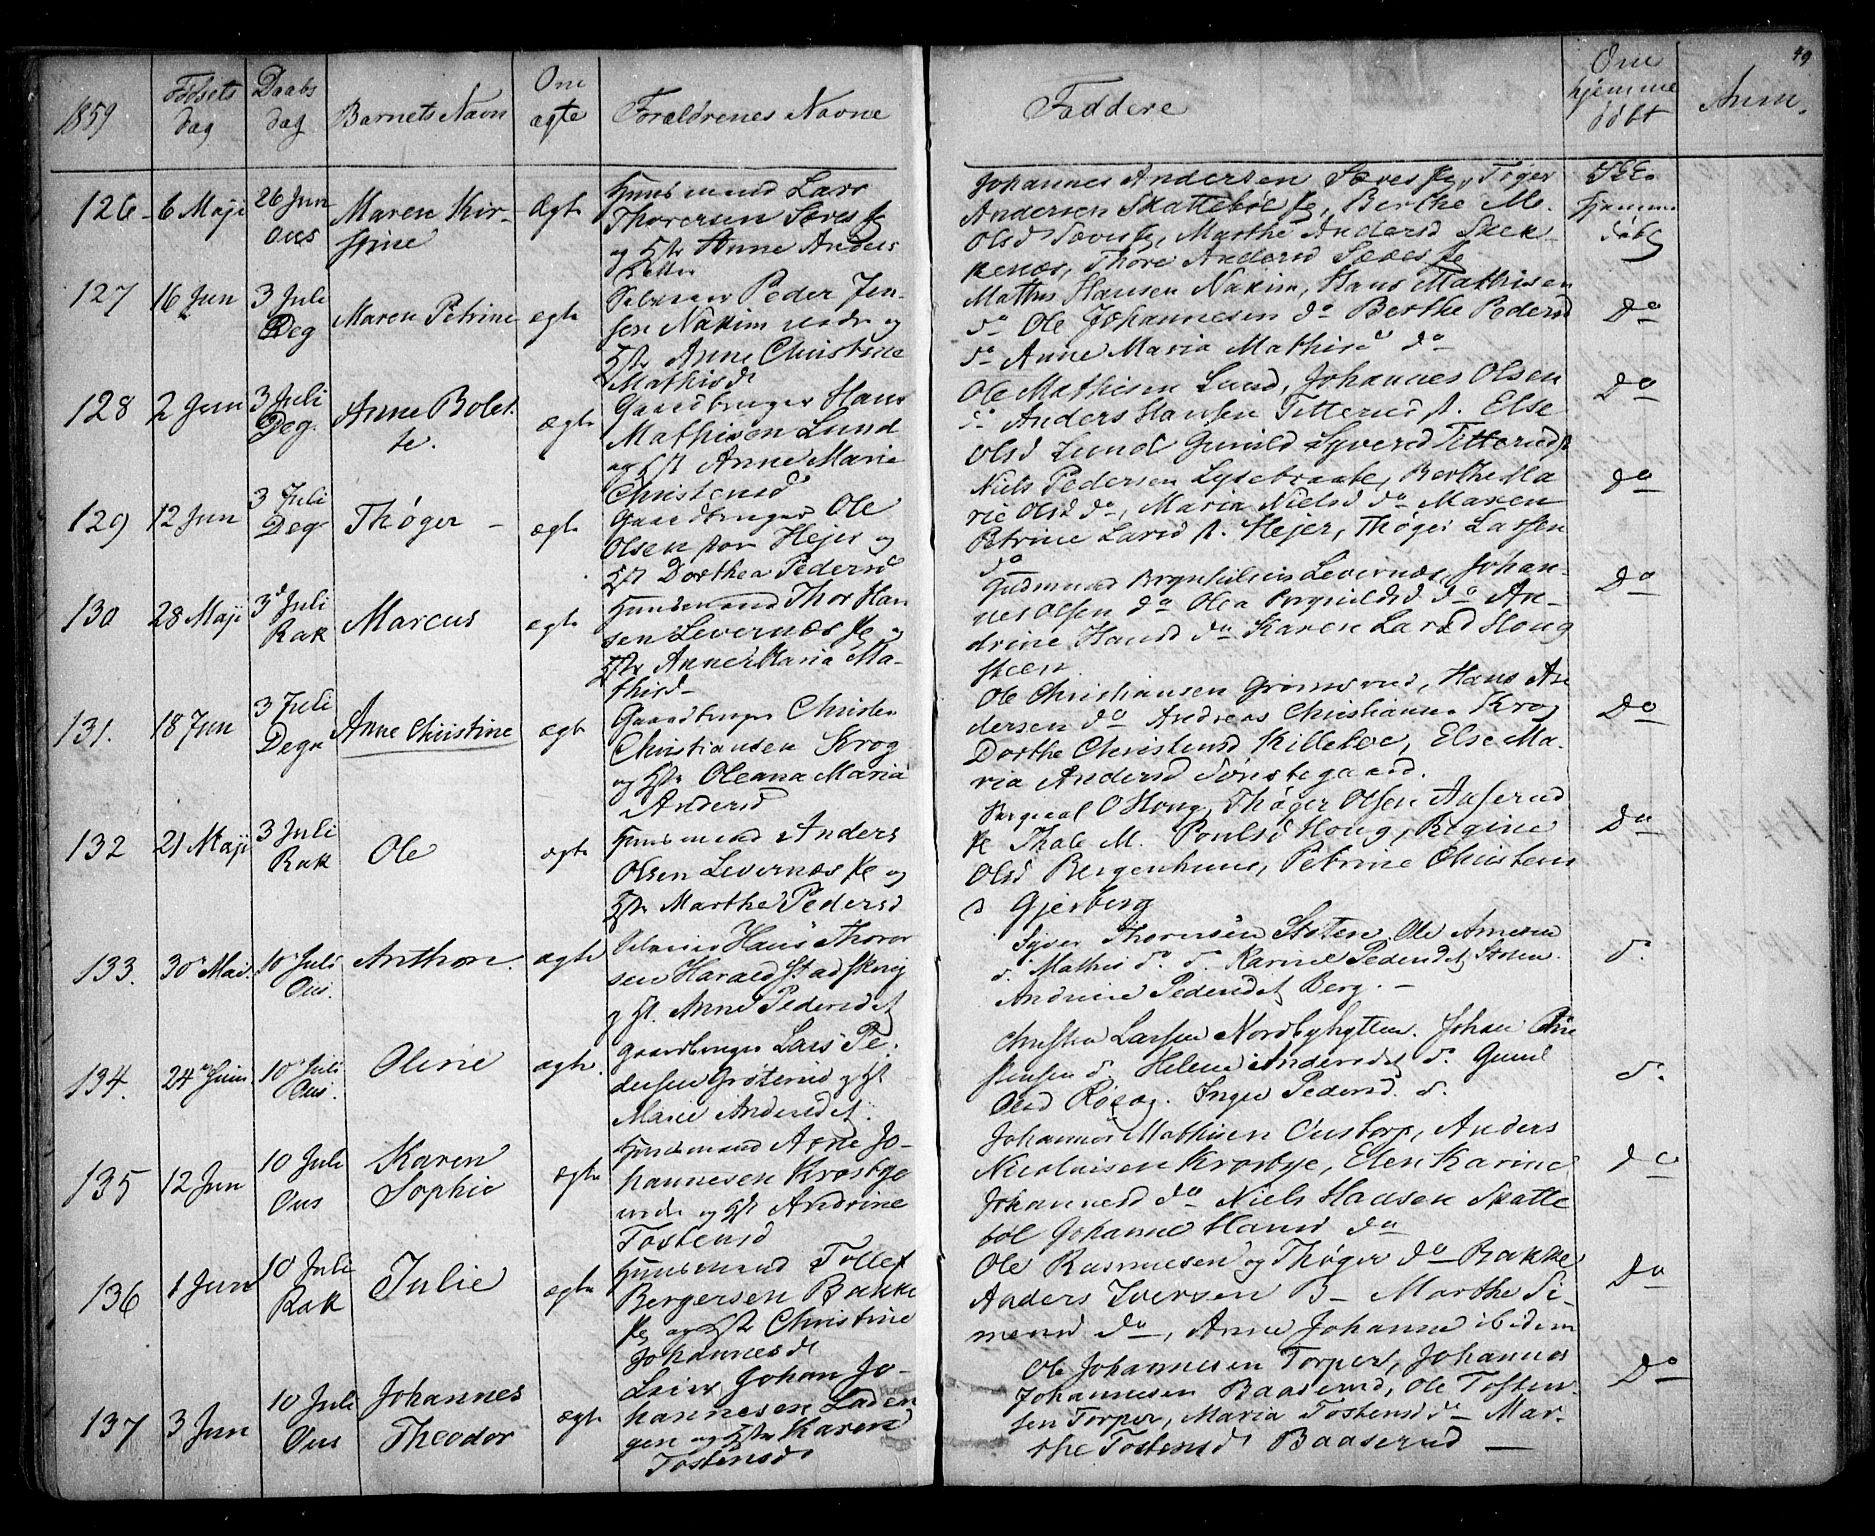 49
1859 Fødsels dag Daabs dag Barnets Navn Om ægte Forældrenes Navne Faddere Om hjemme døbt Anm.
126 6 Maji 26 Jun Ous Maren Kirstine Ægte
Huusmand Lars
Thorersen
og Hstr Anne Anders
datter
Johannes Andersen Thøger
Andersen Skattebøl Berthe M.
Olsd Marthe Andersd
Thore Andersd
Hjemme
døbt
127 16 Jun 3 Juli Deg Maren Petrine ægte
Peder Jen-
sen Nakim og
Hstr Anne Christine
Mathisd
Mathis Hansen Nakim, Hans Mathisen
do Ole Johannesen do Berthe Pedersd
do Anne Maria Mathisd do
Do
128 2 Jun 3 Juli Deg. Anne Bolet-
te. ægte
Gaardbruger Hans
Mathisen Lund
og Hst Anne Marie
Christensd
Ole Mathisen Lund, Johannes Olsen
do Anders Hansen Else
Olsd Lund Gunild Syversd
Do
129 12 Jun 3 Juli Deg Thøger - ægte
Gaardbruger Ole
Olsen Hejer og
Hst Dorthea Pedersd
Niels Pedersen Berthe Ma
rie Olsd do, Maria Nielsd do Maren
Petrine Larsd Hejer, Thøger Larsen
do
Do
130 28 Maji 3 Juli Rak Marcus ægte
Huusmand Thor Han
sen Levernæs og
Hstr Anne Maria Ma-
thisd-
Gudmund Levernæs, Johan-
nes Olsen do Olea do An-
drine Hansd do Karen Larsd Houg
steen
Do
131. 18 Jun 3 Juli Degn Anne Christine ægte
Gaardbruger Christen
Christiansen Krog
og Hstr Oleana Maria
Andersd
Ole Christiansen Hans An
dersen do Andreas Christians. Krog
Dorthe Christensd Killebøe, Else Ma-
ria Andersd
Do
132 21 Maji 3 Juli Rak Ole ægte
Huusmand Anders
Olsen Levernæs og
Hstr Marthe Pedersd
O Houg, Thøger Olsen Aaserud
Thale M. Poulsd Houg, Regine
Olsd Bergenhuus, Petrine Christens
d Gjerberg
Do
133. 30 Mai. 10 Juli Ous. Anthon. ægte
Hans Thorer
sen
og Hst. Anne Pedersdet
Syver Thorersen Støten, Ole Arnesen
d. Mathis do. d. Karine Pedersdet Støten.
Andrine Pedersdet Berg. -
d.
134. 24 Juni 10 Juli Ous. Oline ægte.
Gaardbruger Lars Pe.
dersen og Hst
Marie Andersdet.
Christen Larsen Nordbyhytten. Johan Chri
stensen d. Helene Andersdet d. Gunil
Olsd Inger Pedersd. d.
d.
135 12 Jun 10 Juli Ous Karen
Sophie ægte
Huusmand Arne Jo-
hannesen Krosbye
og Hst Andrine
Tostensd
Johannes Mathisen Anders
Nicolaisen Krosbye, Elen Karine
Johannesd do Niels Hansen Skatte
bøl Johanne Hansd do
do
136 1 Jun 10 Juli Rak Julie ægte
Huusmand Tollef
Bergersen Bakke
og Hstr Christine
Johannesd
Ole Rasmusen og Thøger do Bakke
Anders Iversen B- Marthe Si-
mensd do, Anne Johanne ibidem
Do
137 3 Jun 10 Juli Ous Johannes
Theodor ægte
Johan Jo-
hannesen
og Hstr Karen
Tostensd
Ole Johannesen Torper, Johannes
Johannesen Baaserud, Ole Tosten-
sen Torper, Maria Tostensd do Mar-
the Tostensd Baaserud -
Do